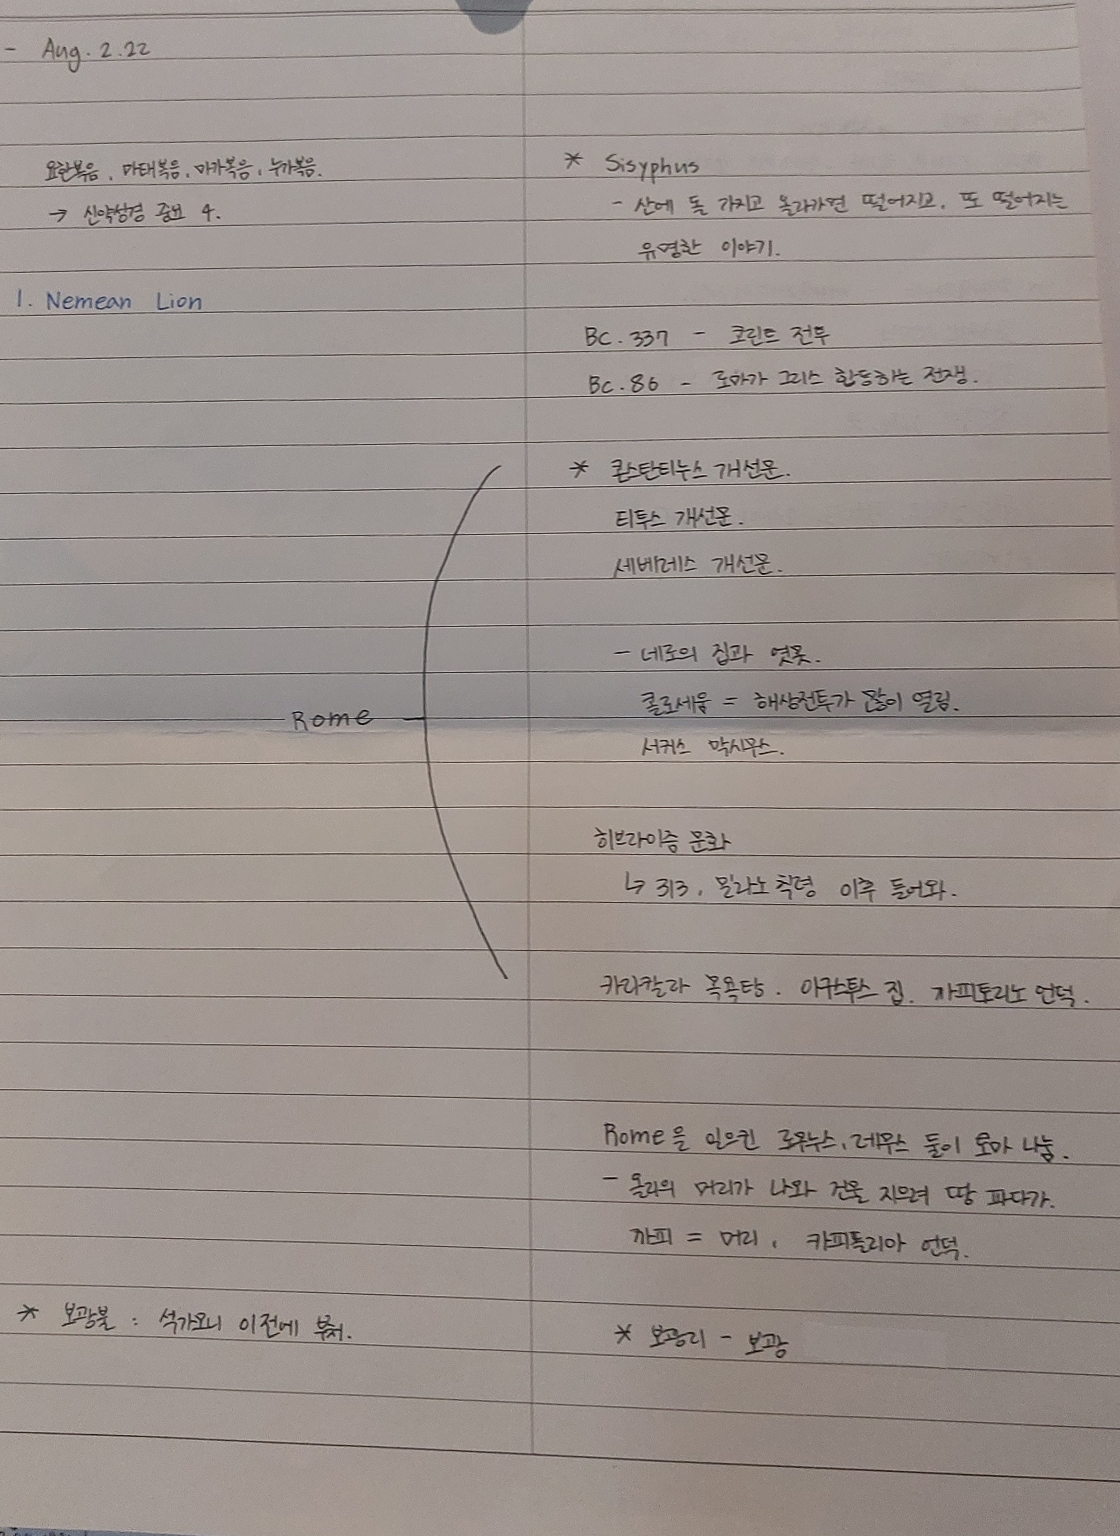 - Aug. 2. 22
요한복음, 마태복음, 마카복음, 누가복음.
→ 신약성경 중요 4.
1. Nemean Lion
* Sisyphus
- 산에 돌 가지고 올라가면 떨어지고, 또 떨어지는
유명한 이야기.
BC. 337 - 코린트 전투
BC. 86 - 로마가 그리스 함동하는 전쟁.
* 콘스탄티누스 개선문.
티투스 개선문.
세베레스 개선문.
- 네로의 집과 연못.
콜로세움 = 해상전투가 많이 열림.
서커스 막시무스.
Rome
히브라이즘 문화
↳ 313, 밀라노 칙령 이후 들어와.
카라칼라 목욕탕. 아구스투스 집. 까피토리노 언덕.
Rome을 일으킨 로무누스, 레무스 둘이 로마 나눔.
- 올라의 머리가 나와 건물 지으려 땅 파다가.
까피 = 머리, 카피톨리아 언덕.
* 보광불 : 석가모니 이전에 부처.
* 보광리 - 보광